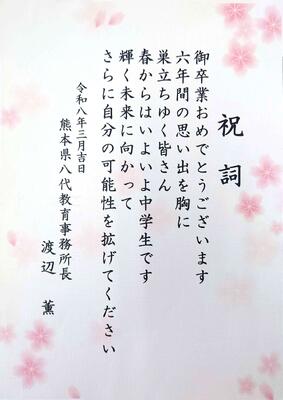 祝詞
御卒業おめでとうございます
六年間の思い出を胸に
巣立ちゆく皆さん
春からはいよいよ中学生です
輝く未来に向かって
さらに自分の可能性を拡げてください
令和八年三月吉日
熊本県八代教育事務所長
渡辺 薫